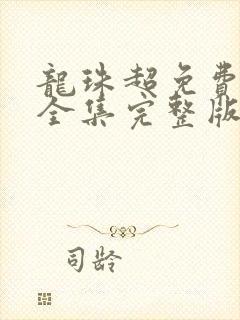 龍珠超免費
全集完整版
司齡